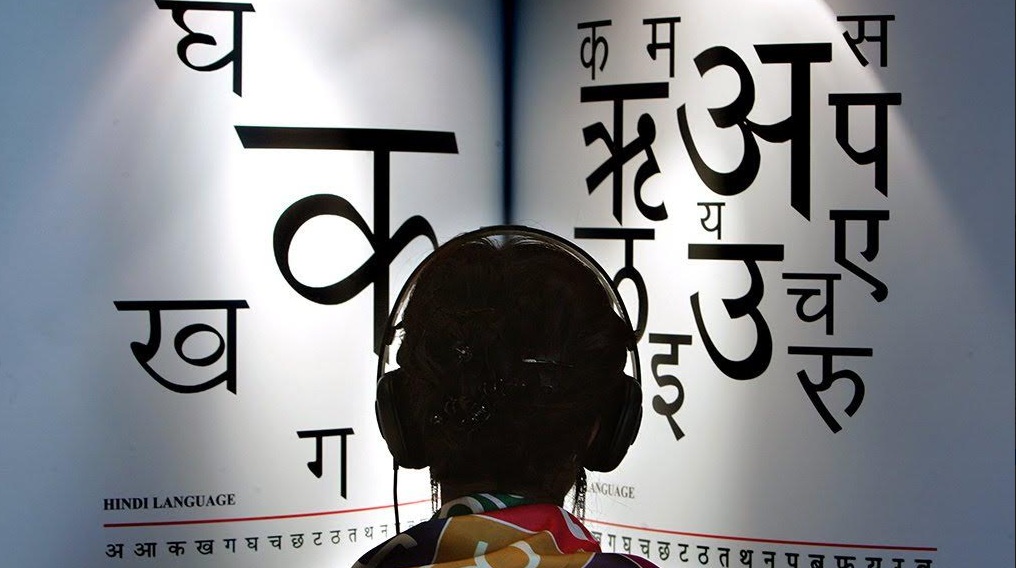 घ
क
ख
ग
HINDI LANGUAGE
अ आ क ख ग घ च छ ट ठ त थ न
क म स
ऋ अ प
य ए
उ च
इ रु
ANGUAGE
ग घ च छ ट ठ त थ न प ब फ य र